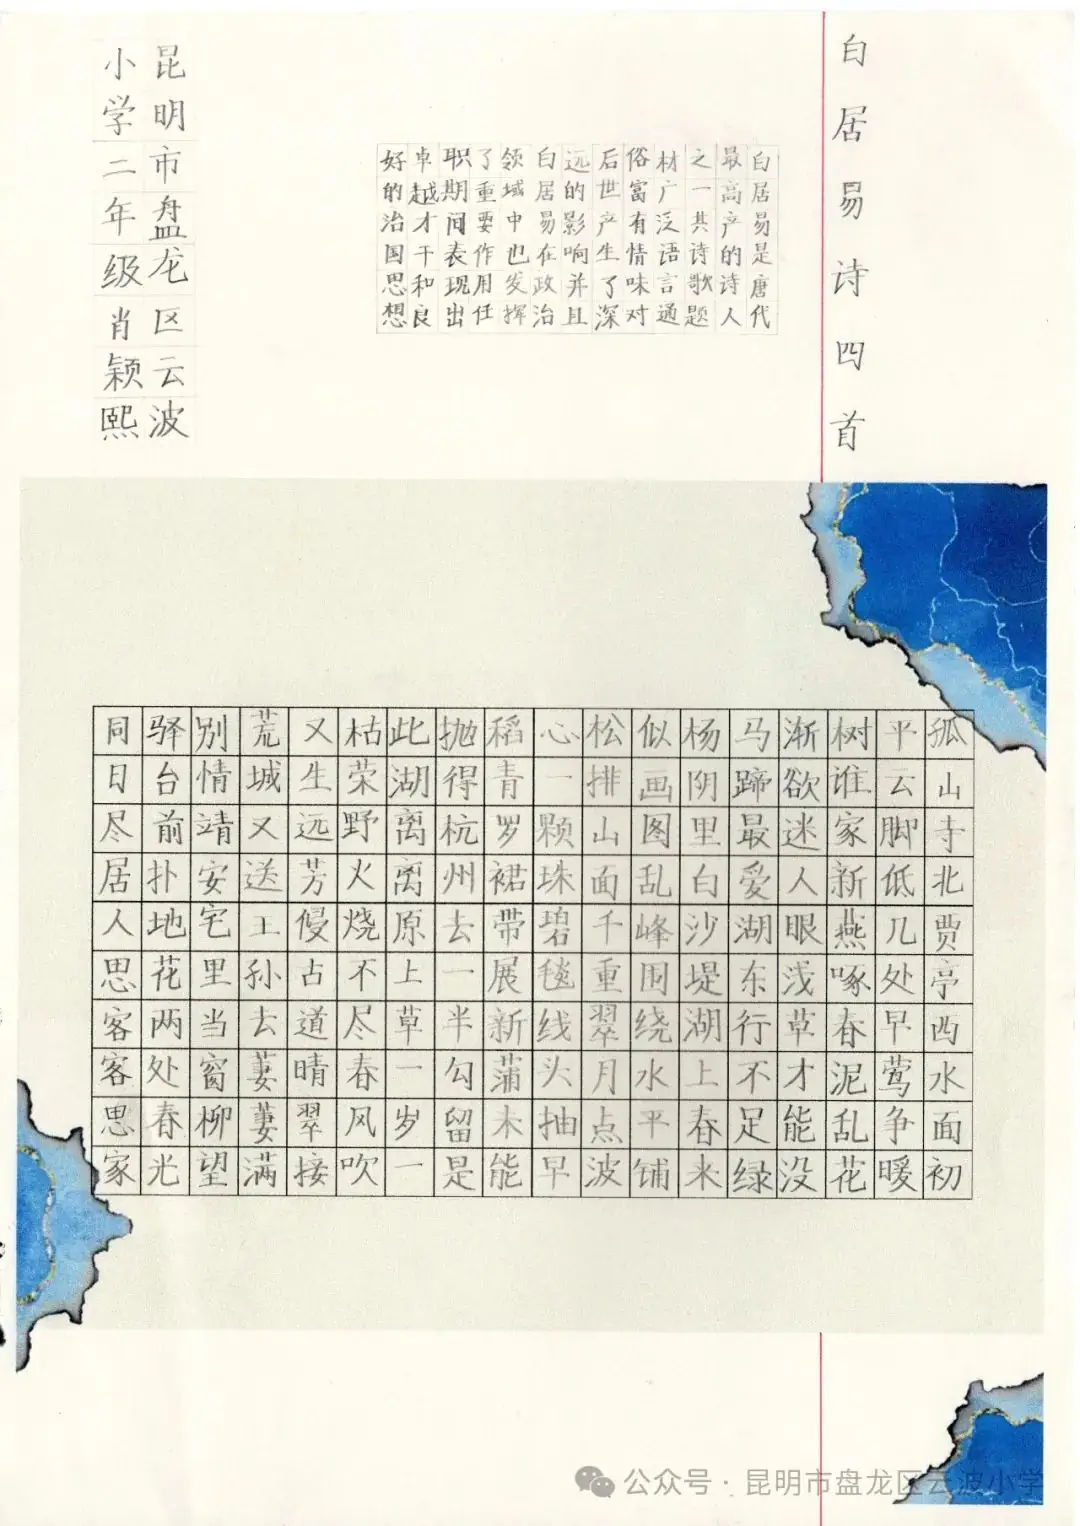 白居易诗四首
白居易是唐代
最高产的诗人
之一共诗歌题
材广泛语言通
俗富有情味对
后世产生了深
远的影响并且
白居易在政治
领域中也发挥
了重要作用任
职期间表现出
卓越才干和良
好的治国思想
昆明市盘龙区云波
小学二年级肖颖熙
孤山寺北贾亭西水面初
平云脚低几处早莺争暖
树谁家新燕啄春泥乱花
渐欲迷人眼浅草才能没
马蹄最爱湖东行不足绿
杨阴里白沙堤湖上春来
似画图乱峰围绕水平铺
松排山面千重翠月点波
心一颗珠碧毯线头抽早
稻青罗裙带展新蒲未能
抛得杭州去一半勾留是
此湖离离原上草一岁一
枯荣野火烧不尽春风吹
又生远芳侵古道晴翠接
荒城又送王孙去萋萋满
别情靖安宅里当窗柳望
驿台前扑地花两处春光
同日尽居人思客客思家
公众号·昆明市盘龙区云波小学